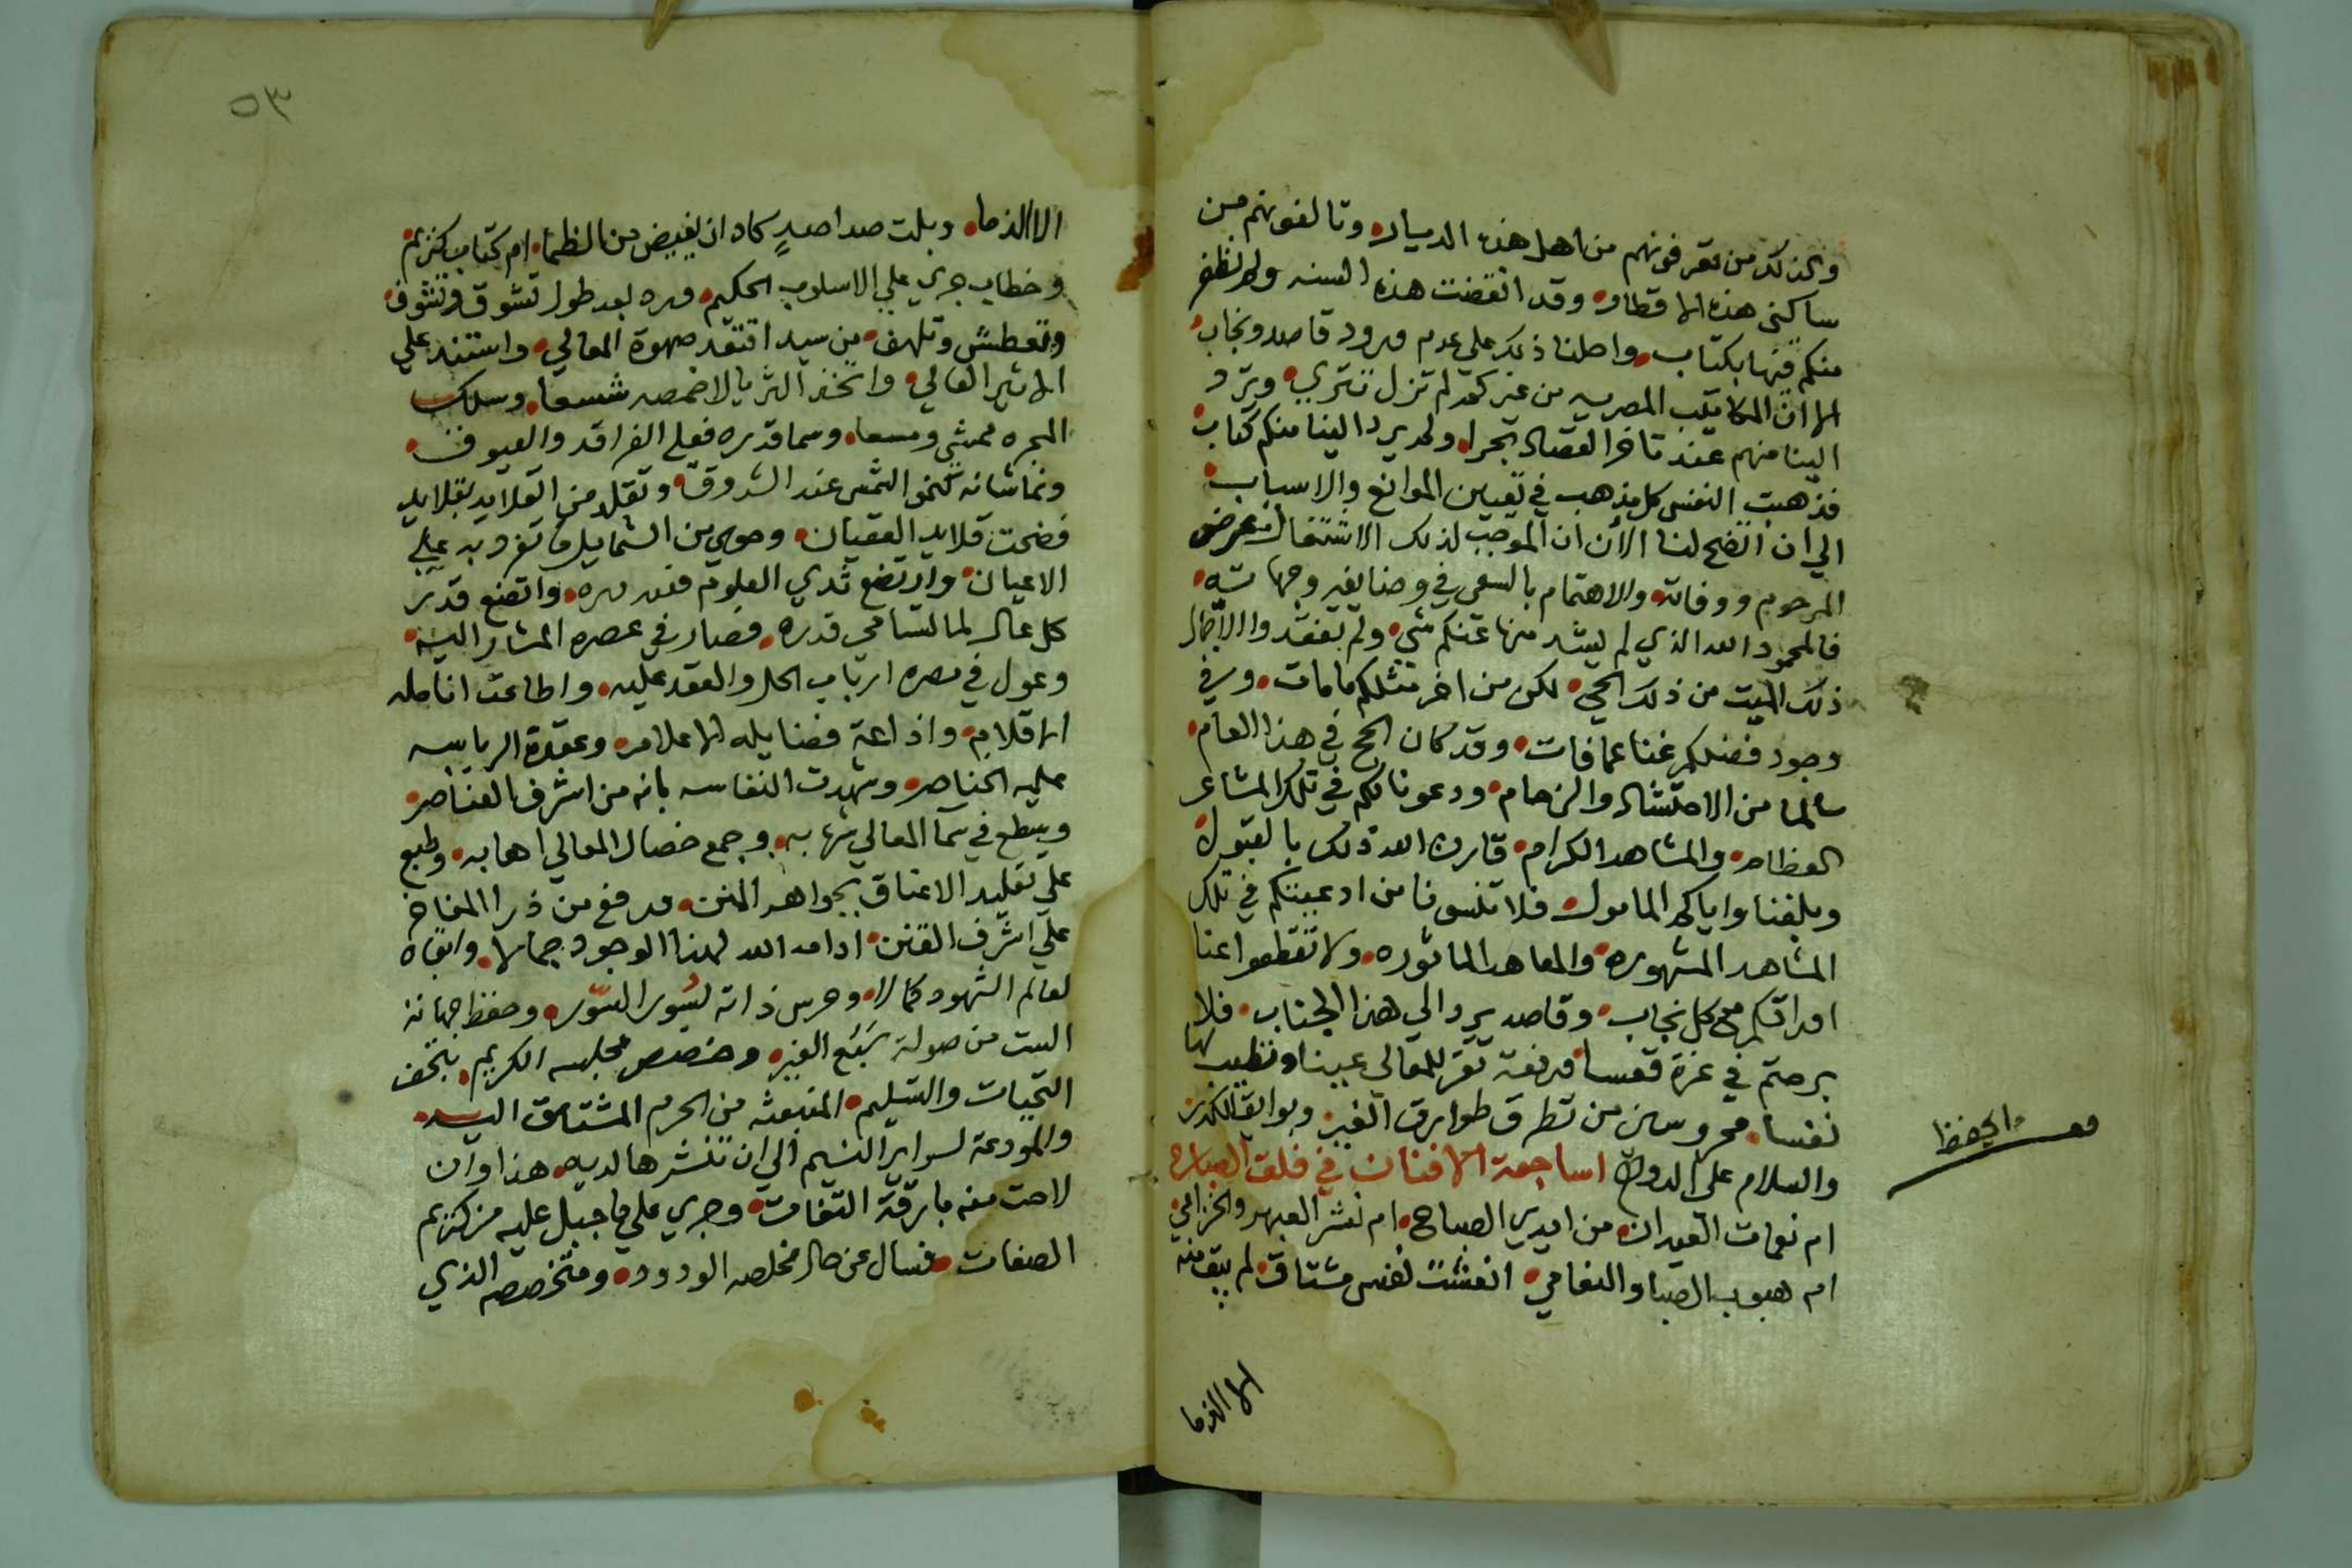 وكذلك من تعرفونهم من اهل هذه الديار وتالفونهم من
ساكني هذه الاقطار وقد انقضت هذه السنه ولم نظفر
منكم فيها بكتاب واحلنا ذلك على عدم ورود قاصد ونجاب
الا ان المكاتيب المصريه من غيركم لم تزل تتري وترد
الينا منهم عند تاخر القصاد بحرا ولم يرد الينا منكم كتاب
فذهبت النفس كل مذهب في تعيين الموانع والاسباب
الي ان اتضح لنا الان ان الموجب لذلك الاشتغال بمرض
المرحوم ووفاته والاهتمام بالسعي في وضايفه وجهاته
فالمحمود الله الذي لم يشد منها عنكم شي ولم يفقد والا
ذلك الميت من ذلك الحي لكن من اخر مثلكم ما مات وفي
وجود فضلكم غنا عما فات وقد كان الحج في هذا العام
سالما من الاحتشاد والزحام ودعونا لكم في تلك المشاعر
العظام والمشاهد الكرام قارن الله ذلك بالقبول
وبلغنا واياكم المامول فلا تنسونا من ادعيتكم في تلك
المشاهد المشهوره والمعاهد الماثوره ولا تقطعوا عنا
اوراقكم مع كل نجاب وقاصد يرد الي هذا الجناب فلا
برحتم في عزة قعسا ورفعة تقر للمعالي عينا وتطيب لها
نفسا محروسين من تطرق طوارق الغير وبوايق الكدر
والسلام على الدوام اساجعة الافنان في فلق الصباح
ام نغمات العيدان من ايدي الصباح ام نشر العبهر والخزامي
ام هبوب الصبا والنعامي انعشت نفس مشتاق لم يبق منه
الا الذما
والحفظ
٥٣
الا الذما وبلت صدا صدٍ كاد ان يغيض من الظما ام كتاب كريم
وخطاب جري علي الاسلوب الحكيم ورد بعد طول تشوق وتشوف
وتعطش وتلهف من سيد اقتعد صهوة المعالي واستند علي
الاثير العالي واتخذ الثريا لاخمصه شسعا وسلك
المجره ممشي ومسعا وسما قدره فعلي الفراقد والعيوق
ونما شانه كنمو الشمس عند الشروق وتقلد من القلايد بقلايد
فضحت قلايد العقيان وحوي من الشمايل ما تفرد به علي
الاعيان وارتضع ثدي العلوم فلله دره واتضع قدر
كل عال لما تسامي قدره فصار في عصره المشار اليه
وعول في مصره ارباب الحل والعقد عليه واطاعت انامله
الاقلام واذاعة فضايله الاعلام وعقدة الرياسه
عليه الخناصر وشهدت النفاسه بانه من اشرف العناصر
وسطع في سما المعالي شهابه وجمع خصال المعالي اهابه وطبع
علي تقليد الاعناق بجواهر المنن ورفع من ذرا المفاخر
علي اشرف القنن ادامه الله لهذا الوجود جمالا وابقاه
لعالم الشهود كمالا وحرس ذاته بسور السور وحفظ جهاته
الست من صولة سبع الغير وخصص مجلسه الكريم بتحف
التحيات والتسليم المنبعثه من الحرم المشتاق اليه
والمودعة لسراير النسيم الي ان تنشرها لديه هذا وان
لاحت منه بارقة التفات وجري علي ما جبل عليه من كريم
الصفات فسال عن حال مخلصه الودود ومتخصصه الذي